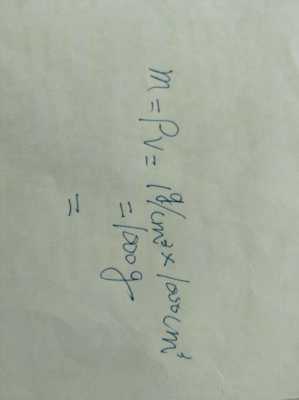 m = ρv = 1g/cm³ × 1000cm³
= 1000g
=